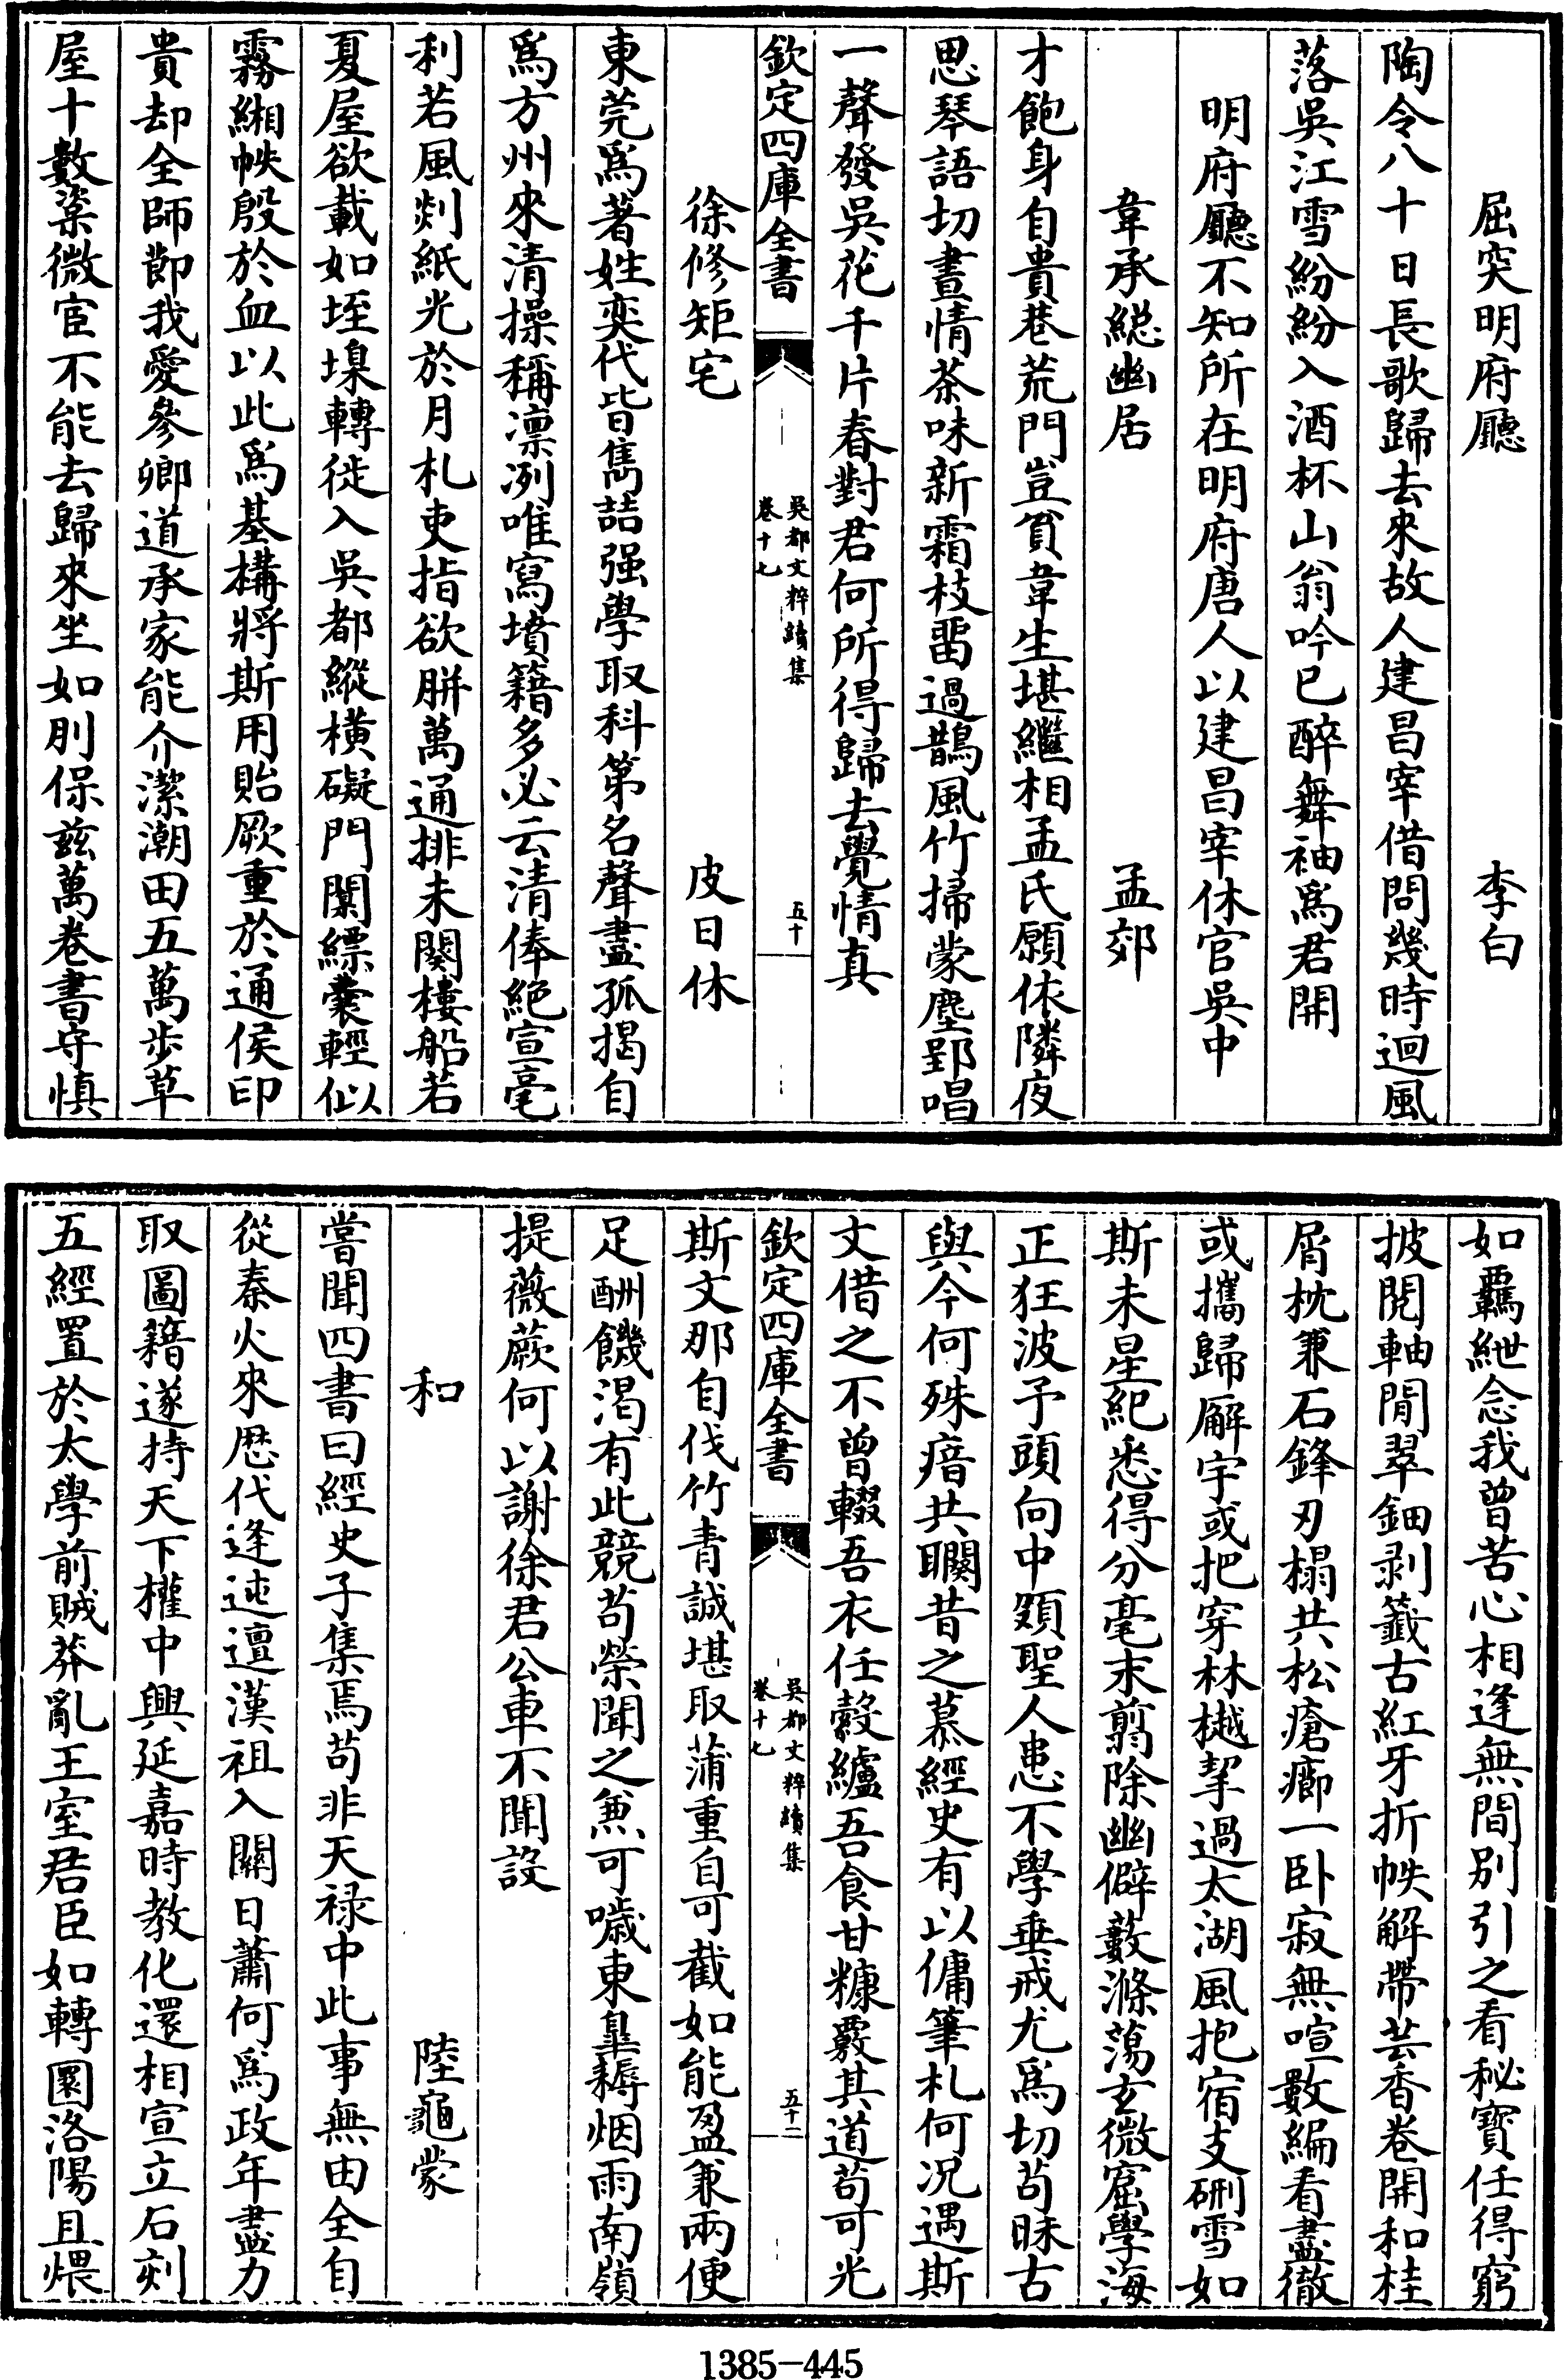 屈突明府廳 李白
陶令八十日長歌歸去來故人建昌宰借問幾時迴風
落吳江雪紛紛入酒杯山翁吟已醉舞袖爲君開
明府廳不知所在明府唐人以建昌宰休官吳中
韋承緫幽居 孟郊
才飽身自貴巷荒門豈貧韋生堪繼相孟氏願依隣夜
思琴語切晝情茶味新霜枝畱過鵲風竹掃蒙塵郢唱
一聲發吳花千片春對君何所得歸去覺情真
欽定四庫全書 吳都文粹續集 卷十七 五十
徐修矩宅 皮日休
東莞爲著姓奕代皆雋喆强學取科第名聲盡孤揭自
爲方州來清操稱凛冽唯寫墳籍多必云清俸絕宣毫
利若風剡紙光於月札吏指欲胼萬通排未闋樓船若
夏屋欲載如垤堁轉徙入吳都縱橫礙門闑縹囊輕似
霧緗帙殷於血以此爲基構將斯用貽厥重於通侯印
貴却全師節我愛參卿道承家能介潔潮田五萬步草
屋十數楶微宦不能去歸來坐如刖保茲萬卷書守愼
如羈紲念我曾苦心相逢無間别引之看秘寶任得窮
披閱軸閒翠鈿剥籤古紅牙折帙解帶芸香卷開和桂
屑枕兼石鋒刃榻共松瘡癤一卧寂無喧數編看盡徹
或攜歸廨宇或把穿林樾挈過太湖風抱宿支硎雪如
斯未星紀悉得分毫末翦除幽僻藪滌蕩玄微窟學海
正狂波予頭向中頞聖人患不學垂戒尤爲切苟昧古
與今何殊瘖共聵昔之慕經史有以傭筆札何况遇斯
文借之不曾輟吾衣任縠纑吾食甘糠覈其道苟可光
欽定四庫全書 吳都文粹續集 卷十七 五十一
斯文那自伐竹青誠堪取蒲重自可截如能盈兼兩便
足酬饑渴有此競苟榮聞之兼可噦東臯耨烟雨南嶺
提薇蕨何以謝徐君公車不聞設
和 陸龜蒙
嘗聞四書曰經史子集焉苟非天禄中此事無由全自
從秦火來厯代逢迍邅漢祖入關日蕭何爲政年盡力
取圖籍遂持天下權中興延嘉時教化還相宣立石刻
五經置於太學前賊莽亂王室君臣如轉圜洛陽且煨
1385-445